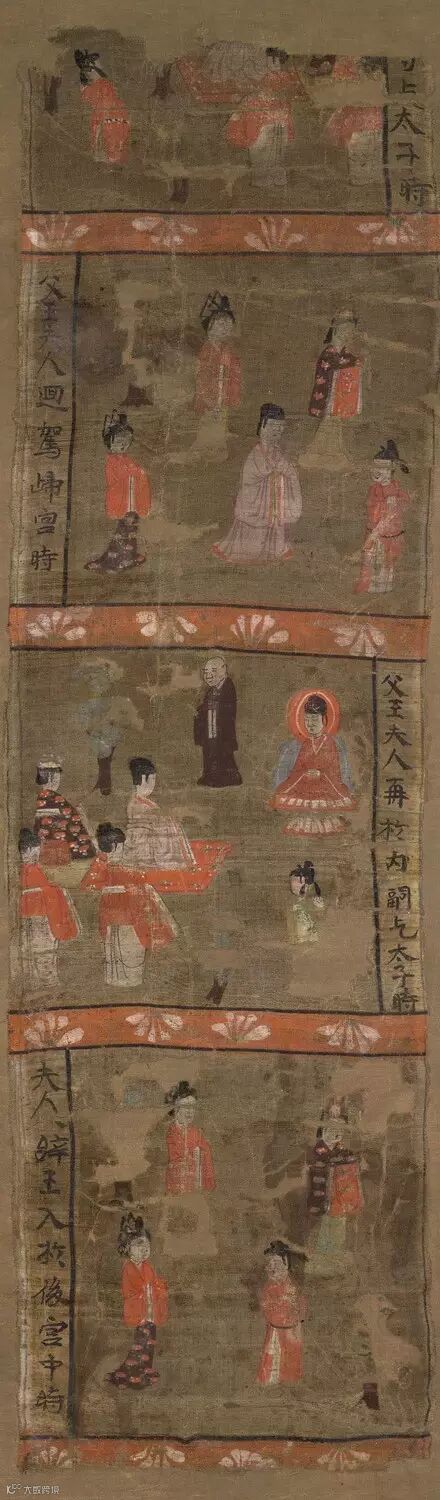 上太子時
父王夫人迴駕歸宮時
父王夫人再於內嗣乞太子時
夫人辞王入於後宮中時
大數跨境